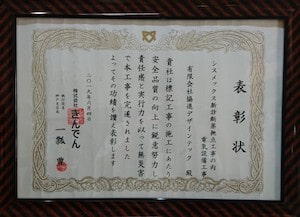 表彰状
シスメックス新診断薬拠点工事の内
電気設備工事
有限会社協進デザインテック 殿
貴社は標記工事の施工にあたり
安全品質の向上に鋭意努力し
責任感と実行力を以って無災害
で本工事を完遂されました
よってその功績を讃え表彰します
二〇一九年六月四日
株式会社きんでん